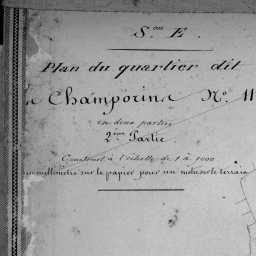 S.on E.
Plan du quartier dit
Champorin Nº 11
en deux parties
2ème Partie
Construit à l'échelle de 1 à 1000
millimètre sur le papier pour un mètre sur le terrain